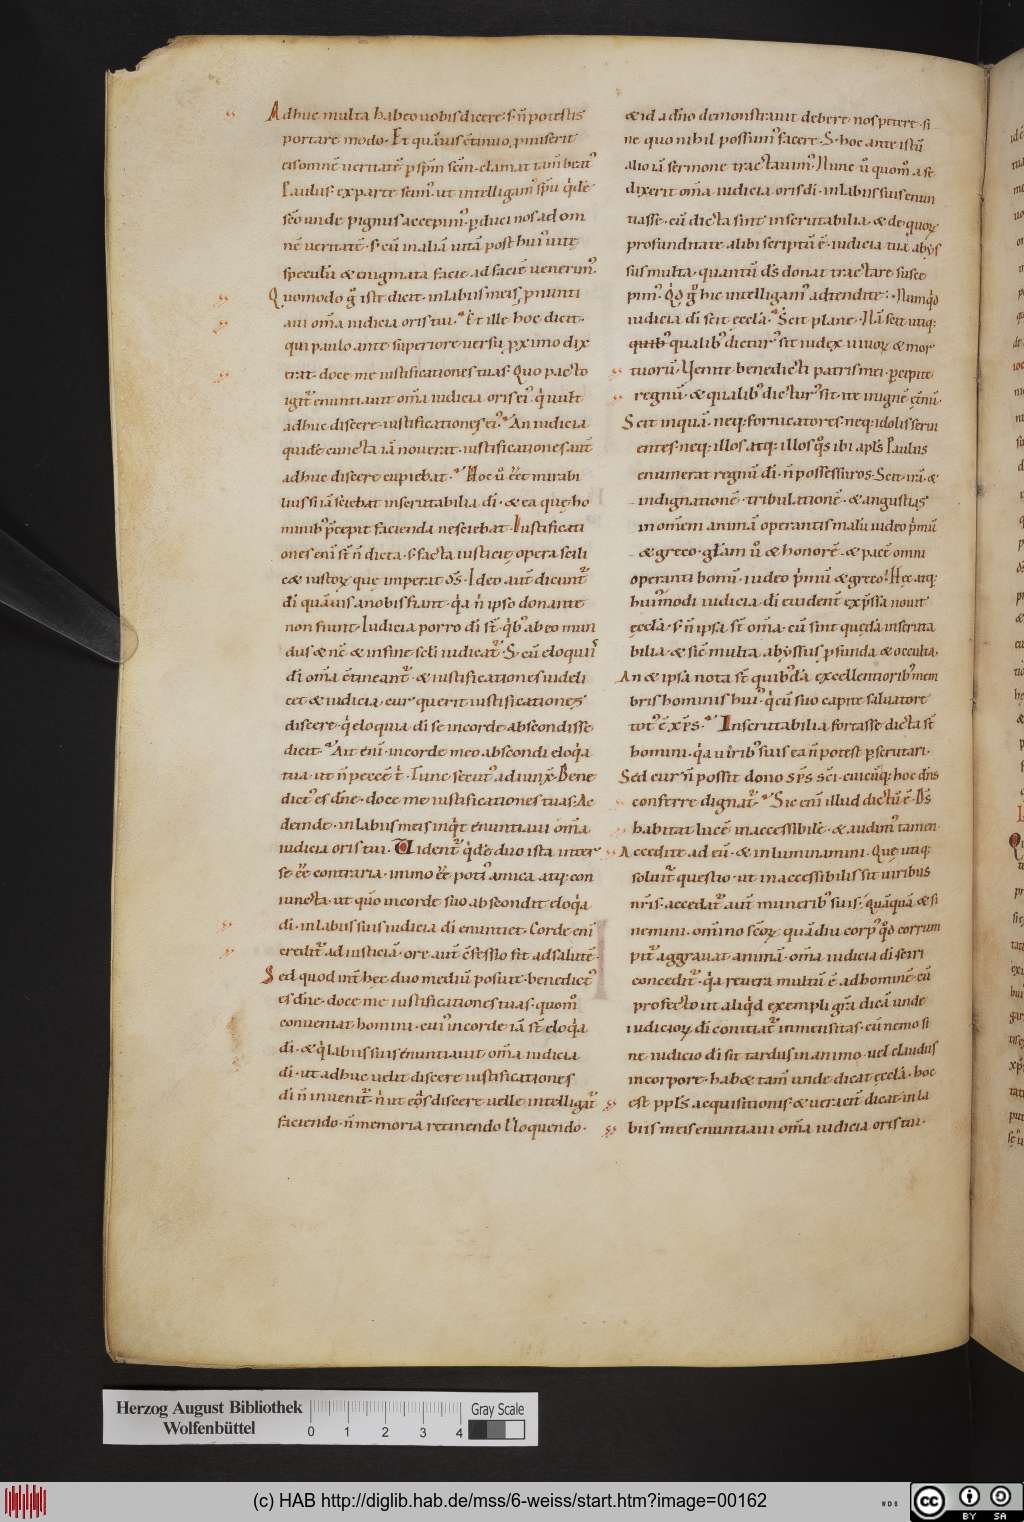 Adhuc multa habeo uobis dicere· s; n̄ potestis
portare modo· Et quāuis c̄tinuo, p̄miserit
eis omnē ueritatē ꝑ sp̄m sc̄m· clamat tam̄ beat᾿
Paulus· ex parte scim᾿· ut intelligam᾿ sp̄u q̇dē
sc̄o unde pignus accepim᾿· ꝑduci nos ad om
nē ueritatē· s; cū in aliā uitā post hui᾿ uitę
speculū & enigmata facie ad faciē uenerim᾿·
Quomodo g̊ iste dicit· in labiis meis ꝓnunti
aui om̄a iudicia oris tui· Et ille hoc dicit·
qui paulo ante superiore uersu ꝓximo dix
erat· doce me iustificationes tuas· Quo pacto
igit᾿ enuntiauit om̄a iudicia oris ei᾿· q̇ uult
adhuc discere iustificationes ei᾿· An iudicia
quidē cuncta iā nouerat· iustificationes aut̄
adhuc discere cupiebat· Hoc ů ēēt mirabi
lius si iā sciebat inscrutabilia dī· & ea que ho
minib᾿ p̄cepit facienda nesciebat· Iustificati
ones eni᾿ st̄ n̄ dicta· s; facta iusticię opera scili
c& iustoꝝ que imperat ds̄· Ideo aut̄ dicunt᾿
dī quāuis a nobis fiant· q̇a n̄ ipso donante
non fiunt· Iudicia porro dī st̄· q̇b᾿ ab eo mun
dus & nc̄ & in fine sc̄li iudicat᾿· S; cū eloquii᾿
dī om̄a c̄tineant᾿· & iustificationes uideli
cet & iudicia, cur querit iustificationes
discere· q̇ eloquia dī se in corde abscondisse
dicit· Ait eni᾿· in corde meo abscondi eloq̇a
tua· ut n̄ peccē t̄· Tunc secut᾿ adiunx̄· Bene
dict᾿ es dn̄e· doce me iustificationes tuas· Ac
deinde· in labiis meis inq̇t enuntiaui om̄a
iudicia oris tui· Uident᾿ q̇dē duo ista inter
se ēē contraria· immo ēē poti᾿ amica atq; con
iuncta· ut quō in corde suo abscondit eloq̇a
dī· in labiis suis iudicia dī enuntiet· Corde eni᾿
credit᾿ ad iusticiā· ore aut̄ c̄fessio fit ad salutē·
Sed quod int᾿ hęc duo mediū posuit· benedict᾿
es dn̄e· doce me iustificationes tuas· quom᾿
conueniat homini· cui᾿ in corde iā st̄ eloq̇a
dī· & q̇ labiis suis enuntiauit om̄a iudicia
dī· ut adhuc uelit discere iustificationes
dī n̄ inuenit᾿· n̄ ut eōs discere uelle intelligat᾿
faciendo· n̄ memoria retinendo ł loquendo·
& id a dn̄o demonstrauit debere nos petere· si
ne quo nihil possum᾿ facere· S; hoc ante istū
alio iā sermone tractauim᾿· Nunc ů quom᾿ a se
dixerit om̄a iudicia oris dī· in labiis suis enun
tiasse· cū dicta sint inscrutabilia· & de quoꝝ
profunditate alibi scriptū ē· iudicia tua abys
sus multa· quantū ds̄ donat tractare susce
pim᾿· Qd g̊ hic intelligam᾿ adtendite· Numq̇d
iudicia dī scit ęccl̄a· Scit plane· Nā scit utiq;
qualib᾿ dictur᾿ sit iudex uiuoꝝ & mor
tuorū· Uenite benedicti patris mei· ꝑcipite
regnū· & qualib᾿ dictur᾿ sit· ite in ignē ęt̄nū·
Scit inquā· neq; fornicatores· neq; idolis serui
entes· neq; illos atq; illos q̊s ibi apl̄s Paulus
enumerat regnū dī· n̄ possessuros· Scit irā· &
indignationē· tribulationē· & angustias
in om̄em animā operantis malū iudeo p̄mū
& greco· gl̄am ů & honorē· & pacē omni
operanti bonū· iudeo p̄mū & greco· Hęc atq;
hui᾿modi iudicia dī euident᾿ exp̄ssa nouit
ęccl̄a· s; n̄ ipsa st̄ om̄a· cū sint quędā inscruta
bilia· & sic̄ multa abyssus ꝓfunda & occulta·
An & ipsa nota st̄ quib᾿dā excellentiorib᾿ mem
bris hominis hui᾿· q̇ cū suo capite saluatore
tot᾿ ē xp̄s· Inscrutabilia fortasse dicta st̄
homini· q̇a uirib᾿ suis ea n̄ potest ꝑscrutari·
Sed cur n̄ possit dono sp̄s sc̄i· cuicūq; hoc dn̄s
conferre dignat᾿· Sic eni᾿ illud dictū ē· Ds̄
habitat lucē inaccessibilē· & audim᾿ tamen·
Accedite ad eū· & inluminamini· Que utiq;
soluit᾿ questio· ut inaccessibilis sit uiribus
nr̄is· accedat᾿ aut̄ munerib᾿ suis· Quāquā & si
nemini· om̄ino sc̄oꝝ quādiu corp᾿ q̊d corrum
pit᾿ aggrauat animā· om̄a iudicia dī scīri
concedit᾿· q̇a reuera multū ē ad hominē cū
profecto ut aliq̇d exempli gr̄a dicā unde
iudicioꝝ dī comitat᾿ inmensitas· cū nemo si
ne iudicio dī sit tardus in animo· uel claudus
in corpore· hab& tam̄ unde dicat ęccl̄a· hoc
est ppl̄s acquisitionis· & ueracit᾿ dicat· in la
biis meis enuntiaui om̄a iudicia oris tui·
Herzog August Bibliothek
Wolfenbüttel
0 1 2 3 4
Gray Scale
(c) HAB http://diglib.hab.de/mss/6-weiss/start.htm?image=00162
cc BY SA